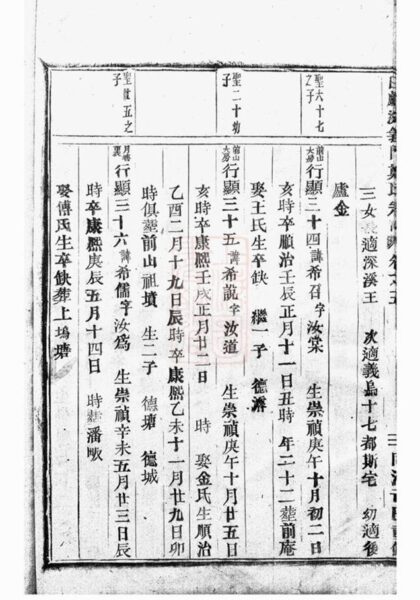 義門鄭氏
卷之五
三女長適深溪王 次適義烏十七都斯宅 幼適後
盧金
聖六十七之子
前山大房 行顯三十 諱希召字汝棠 生崇禎庚午十月初二日
亥時卒順治壬辰正月十一日丑時 年二十二葬前庵
娶王氏生卒缺 繼一子 德濬
聖二十幼子
前山大房 行顯三十五諱希說字汝道 生崇禎庚午十月廿五日
亥時卒康熙壬戌正月廿二日 時 娶金氏生順治
乙酉二月十九日辰時卒康熙乙未十一月廿九日卯
時俱葬前山祖墳 生二子 德瑭 德城
聖廿五之子
行顯三十六諱希儒字汝為 生崇禎辛未五月廿三日辰
時卒康熙庚辰五月十四日 時葬潘畈
娶傅氏生卒缺葬上塢塘